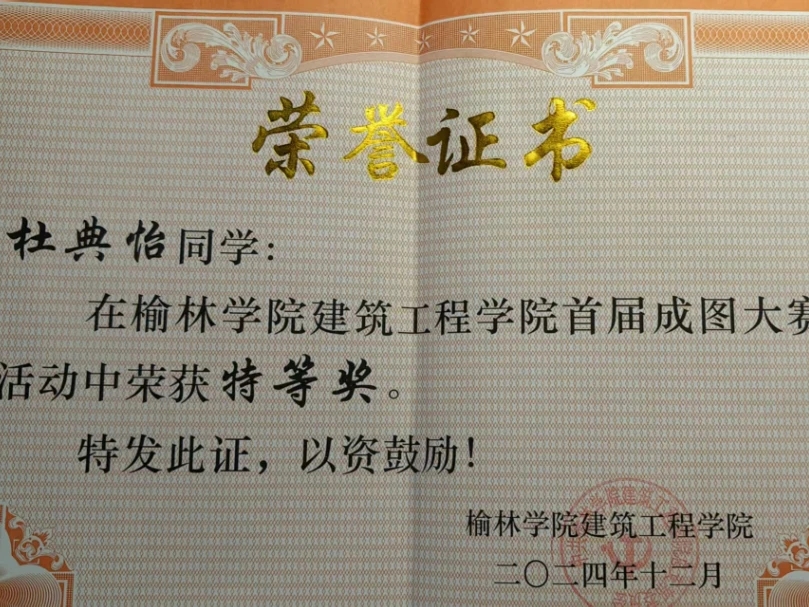 荣誉证书
杜典怡同学:
在榆林学院建筑工程学院首届成图大赛
活动中荣获特等奖。
特发此证，以资鼓励！
榆林学院建筑工程学院
二〇二四年十二月